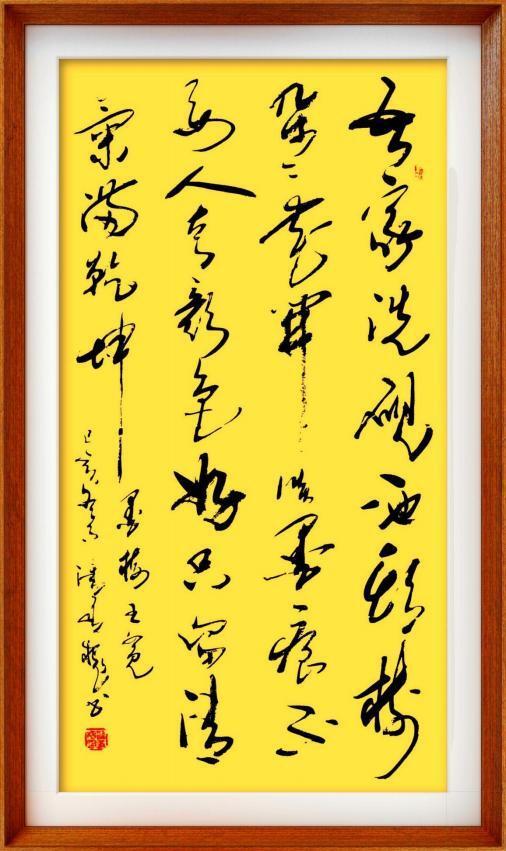 吾家洗砚池头树
朵々花开淡墨痕不
要人夸颜色好只留清
氣满乾坤
墨梅王冕
己亥冬月
书